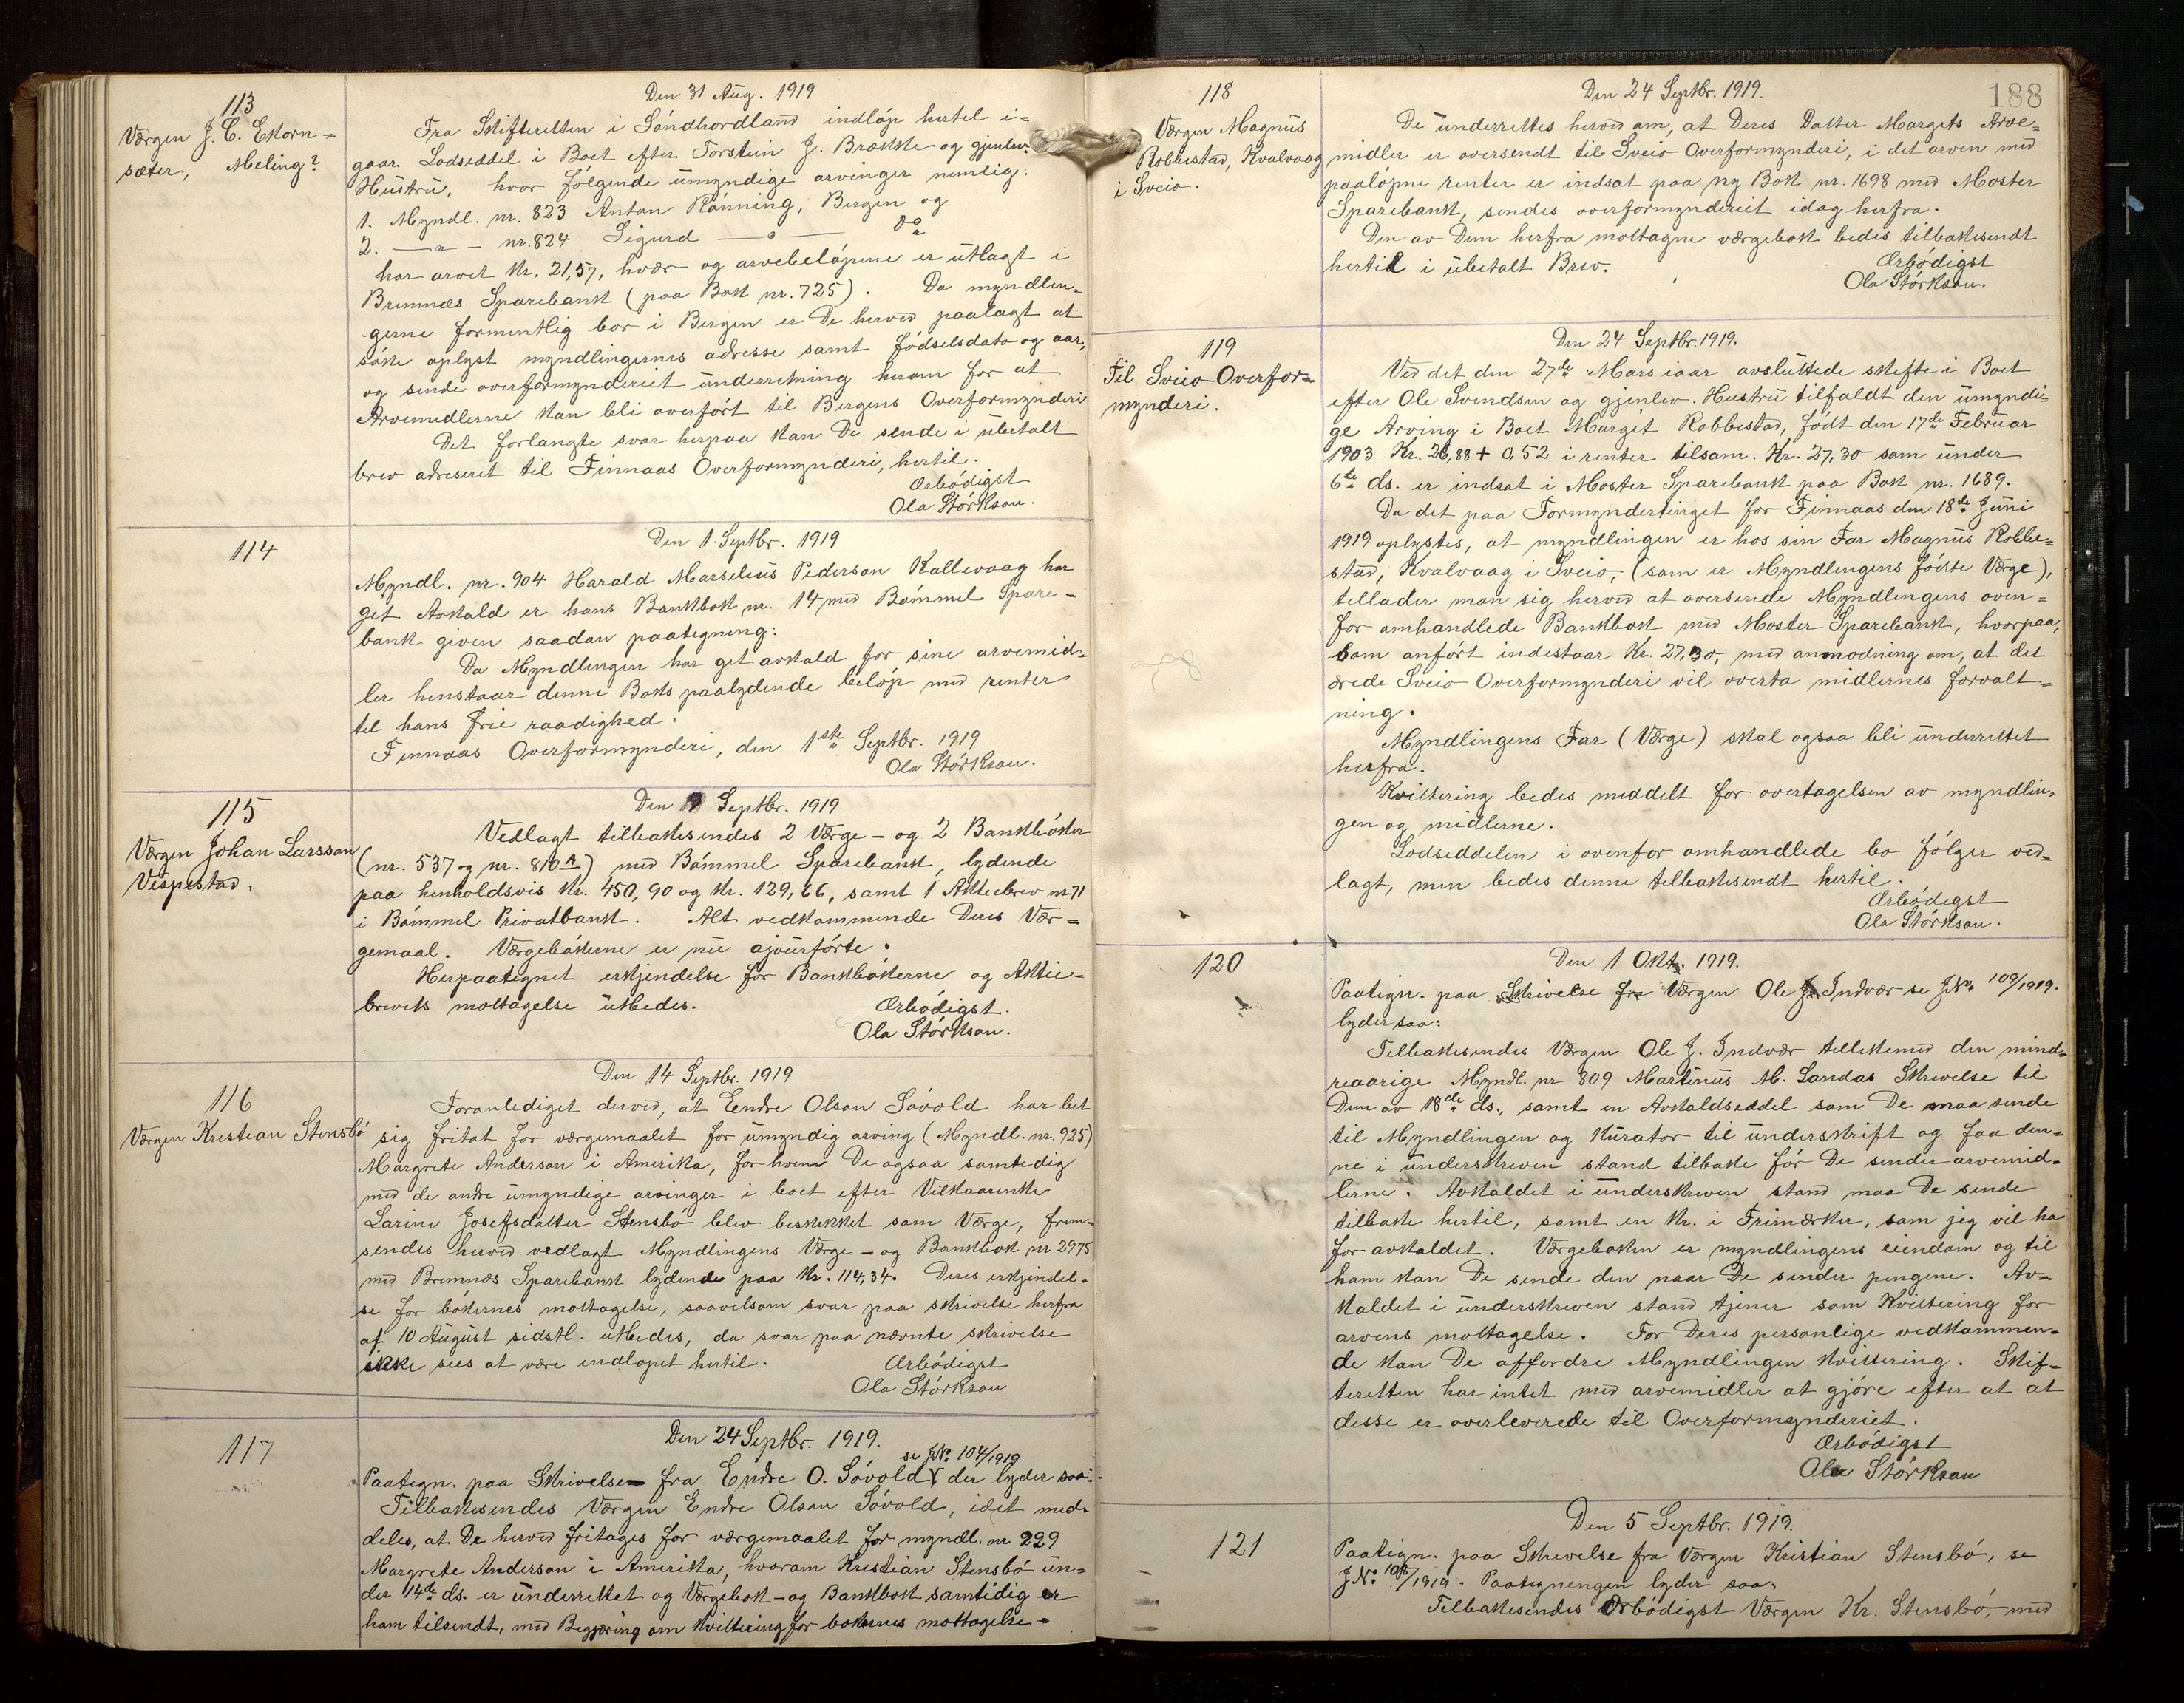 113
Værgen J. C. Ekorn-
sæter, Meling?
Den 31 Aug. 1919
Fra Skifteretten i Söndhordland indløp hertel i-
gaar Lodseddel i Boet efter Torstein J. Brække og gjenlev.
Hustru, hvor følgende umyndige arvinger nemlig:
1. Myndl. nr. 823 Anton Rönning, Bergen og
2. —"— nr. 824 Sigurd —"— Do
har arvet Kr. 21,57, hvær og arvebeløpene er utlagt i
Bremnæs Sparebank (paa Bok nr. 725). Da myndlin-
gerne formentlig bor i Bergen er De herved paalagt at
søke oplyst myndlingernes adresse samt födselsdato og aar,
og sende overformynderiet underretning herom for at
Arvemidlerne kan bli overført til Bergens Overformynderi
Det forlangte svar herpaa kan De sende i ubetalt
brev adreseret til Finnaas Overformynderi, hertil.
Ærbødigst
Ola Störkson.
114
Den 1 Septbr. 1919
Myndl. nr. 904 Harald Marselius Pederson Kallevaag har
get Avkald er hans Bankbok nr. 14 med Bömmel Spare-
bank given saadan paategning:
Da Myndlingen har get avkald for sine arvemid-
ler henstaar denne Boks paalydende beløp med renter
til hans frie raadighed.
Finnaas Overformynderi, den 1ste Septbr. 1919
Ola Störkson.
115
Værgen Johan Larsson
Vespestad.
Den 9 Septbr. 1919
Vedlagt tilbakesendes 2 Værge- og 2 Bankbøker
(nr. 537 og nr. 810 A) med Bömmel Sparebank, lydende
paa henholdsvis Kr. 450,90 og Kr. 129,66, samt 1 Aktiebrev nr 71
i Bömmel Privatbank. Alt vedkommende Deres Vær-
gemaal. Værgebøkerne er nu ajourførte.
Herpaategnet erkjendelse for Bankbøkerne og Aktie-
brevets mottagelse utbedes.
Ærbødigst.
Ola Störkson.
116
Værgen Kristian Stensbö
Den 14 Septbr. 1919
Foranlediget derved, at Eendre Olson Sövold har bet
sig fritat for værgemaalet for umyndig arving (Myndl. nr. 925)
Margrete Anderson i Amerika, for hvem De ogsaa samtedig
med de andre umyndige arvinger i boet efter Vilkaarenke
Larine Josefsdatter Stensbö blev beskikket som Værge, frem-
sendes herved vedlagt Myndlingens Værge- og Bankbok nr 2975
med Bremnæs Sparebank lydende paa Kr. 114,34. Deres erkjendel-
se for bökernes mottagelse, saavelsom svar paa skrivelse herfra
af 10 August sidstl. utbedes, da svar paa nævnte skrivelse
ikke sees at være indløpet hertil.
Ærbödigst
Ola Störkson
117
Den 24 Septbr. 1919.
se JN: 104/1919
Paategn. paa Skrivelse fra Endre O. Sövold der lyder saa:
Tilbakesendes Værgen Endre Olson Sövold, idet med-
deles, at De herved fritages for værgemaalet for myndl. nr 229
Margrete Anderson i Amerika, hvorom Kristian Stensbö un-
der 14de ds. er underrettet og Værgebok- og Bankbok samtidig er
ham tilsendt, med Begjæring om Kvittering for bokenes mottagelse-
188
118
Værgen Magnus
Robbestad, Kvalvaag
i Sveio.
Den 24 Septbr. 1919.
De underrettes herved om, at Deres Datter Margits Arve-
midler er oversendt til Sveio Overformynderi, i det arven med
paaløpne renter er indsat paa ny Bok nr. 1698 med Moster
Sparebank, sendes overformynderiet idag herfra.
Den av Dem herfra mottagne værgebok bedes tilbakesendt
hertil i ubetalt Brev.
Ærbödigst
Ola Störkson.
119
Til Sveio Overfor-
mynderi.
Den 24 Septbr. 1919.
Ved det den 27de Mars iaar avsluttede skifte i Boet
efter Ole Svendsen og gjenlev. Hustru tilfaldt den umyndi-
ge Arving i Boet Margit Robbestad, født den 17de Februar
1903 Kr. 26,88 + 0,52 i renter tilsam. Kr. 27,30 som under
6te ds. er indsat i Moster Sparebank paa Bok nr. 1689.
Da det paa Formyndertinget for Finnaas den 18de Juni
1919 oplystes, at myndlingen er hos sin Far Magnus Robbe-
stad, Kvalvaag i Sveio, (som er Myndlingens födte Værge),
tillader man sig herved at oversende Myndlingens oven-
for omhandlede Bankbok med Moster Sparebank, hvorpaa,
som anført indestaar Kr. 27,30, med anmodning om, at det
ærede Sveio Overformynderi vil overta midlernes forvalt-
ning.
Myndlingens Far (Værge) skal ogsaa bli underrettet
herfra.
Kvittering bedes meddelt for overtagelsen av myndlin-
gen og midlerne.
Lodseddelen i ovenfor omhandlede bo følger ved-
lagt, men bedes denne tilbakesendt hertil.
Ærbödigst
Ola Störkson.
120
Den 1 Okt. 1919.
Paategn. paa Skrivelse fra Værgen Ole J. Indvær se JN: 109/1919.
lyder saa:
Tilbakesendes Værgen Ole J. Indvær tillikemed den mind-
reaarige Myndl. nr 809 Martinus M. Landas Skrivelse til
Dem av 18de ds., samt en Avkaldseddel som De maa sende
til Myndlingen og Kurator til underskrift og faa den-
ne i underskreven stand tilbake før De sender arvemid-
lerne. Avkaldet i underskreven stand maa De sende
tilbake hertil, samt en Kr. i Frimærker, som jeg vil ha
for avkaldet. Værgeboken er myndlingens eiendom og til
ham kan De sende den naar De sender pengene. Av-
kaldet i underskreven stand tjener som Kvittering for
arvens mottagelse. For Deres personlige vedkommen-
de kan De affordre Myndlingen Kvittering. Skif-
teretten har intet med arvemidler at gjøre efter at at
desse er overleverede til Overformynderiet.
Ærbödigst
Ola Störkson
121
Den 5 Septbr. 1919.
Paategn. paa Skrivelse fra Værgen Kristian Stensbö, se
JN: /1919. Paategningen lyder saa,
Tilbakesendes Ærbödigst Værgen Kr. Stensbö, med